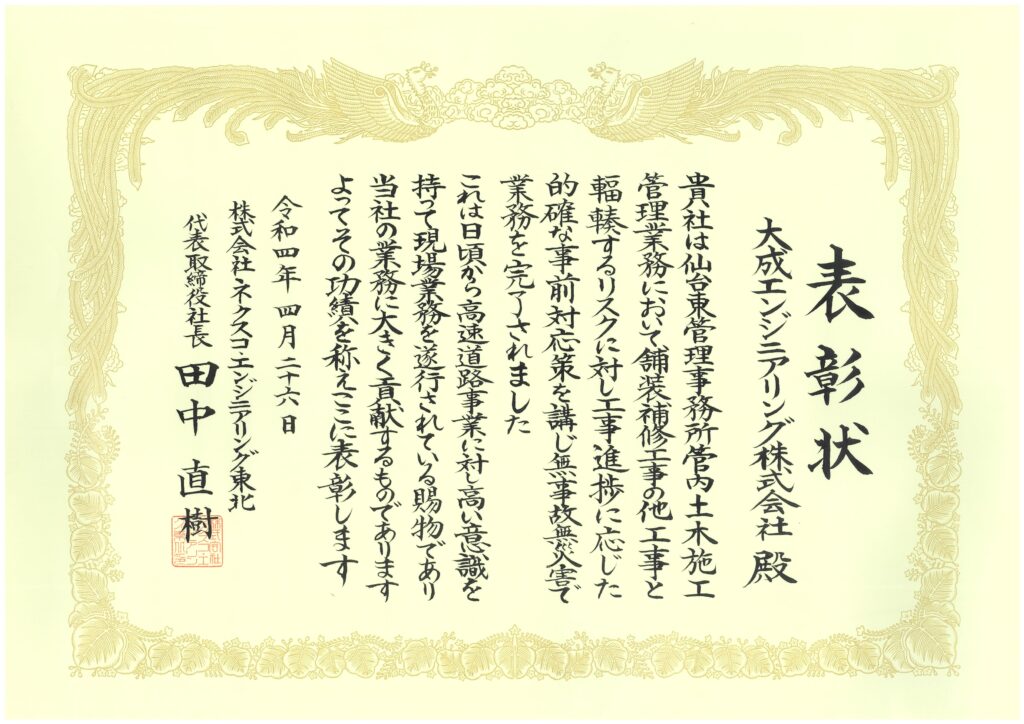 表彰状
大成エンジニアリング株式会社 殿
貴社は仙台東管理事務所管内土木施工
管理業務において舗装補修工事の他工事と
輻輳するリスクに対し工事進捗に応じた
的確な事前対応策を講じ無事故無災害で
業務を完了されました
これは日頃から高速道路事業に対し高い意識を
持って現場業務を遂行されている賜物であり
当社の業務に大きく貢献するものであります
よってその功績を称えここに表彰します
令和四年四月二十六日
株式会社・ネクスコ・エンジニアリング東北
代表取締役社長 田中 直樹